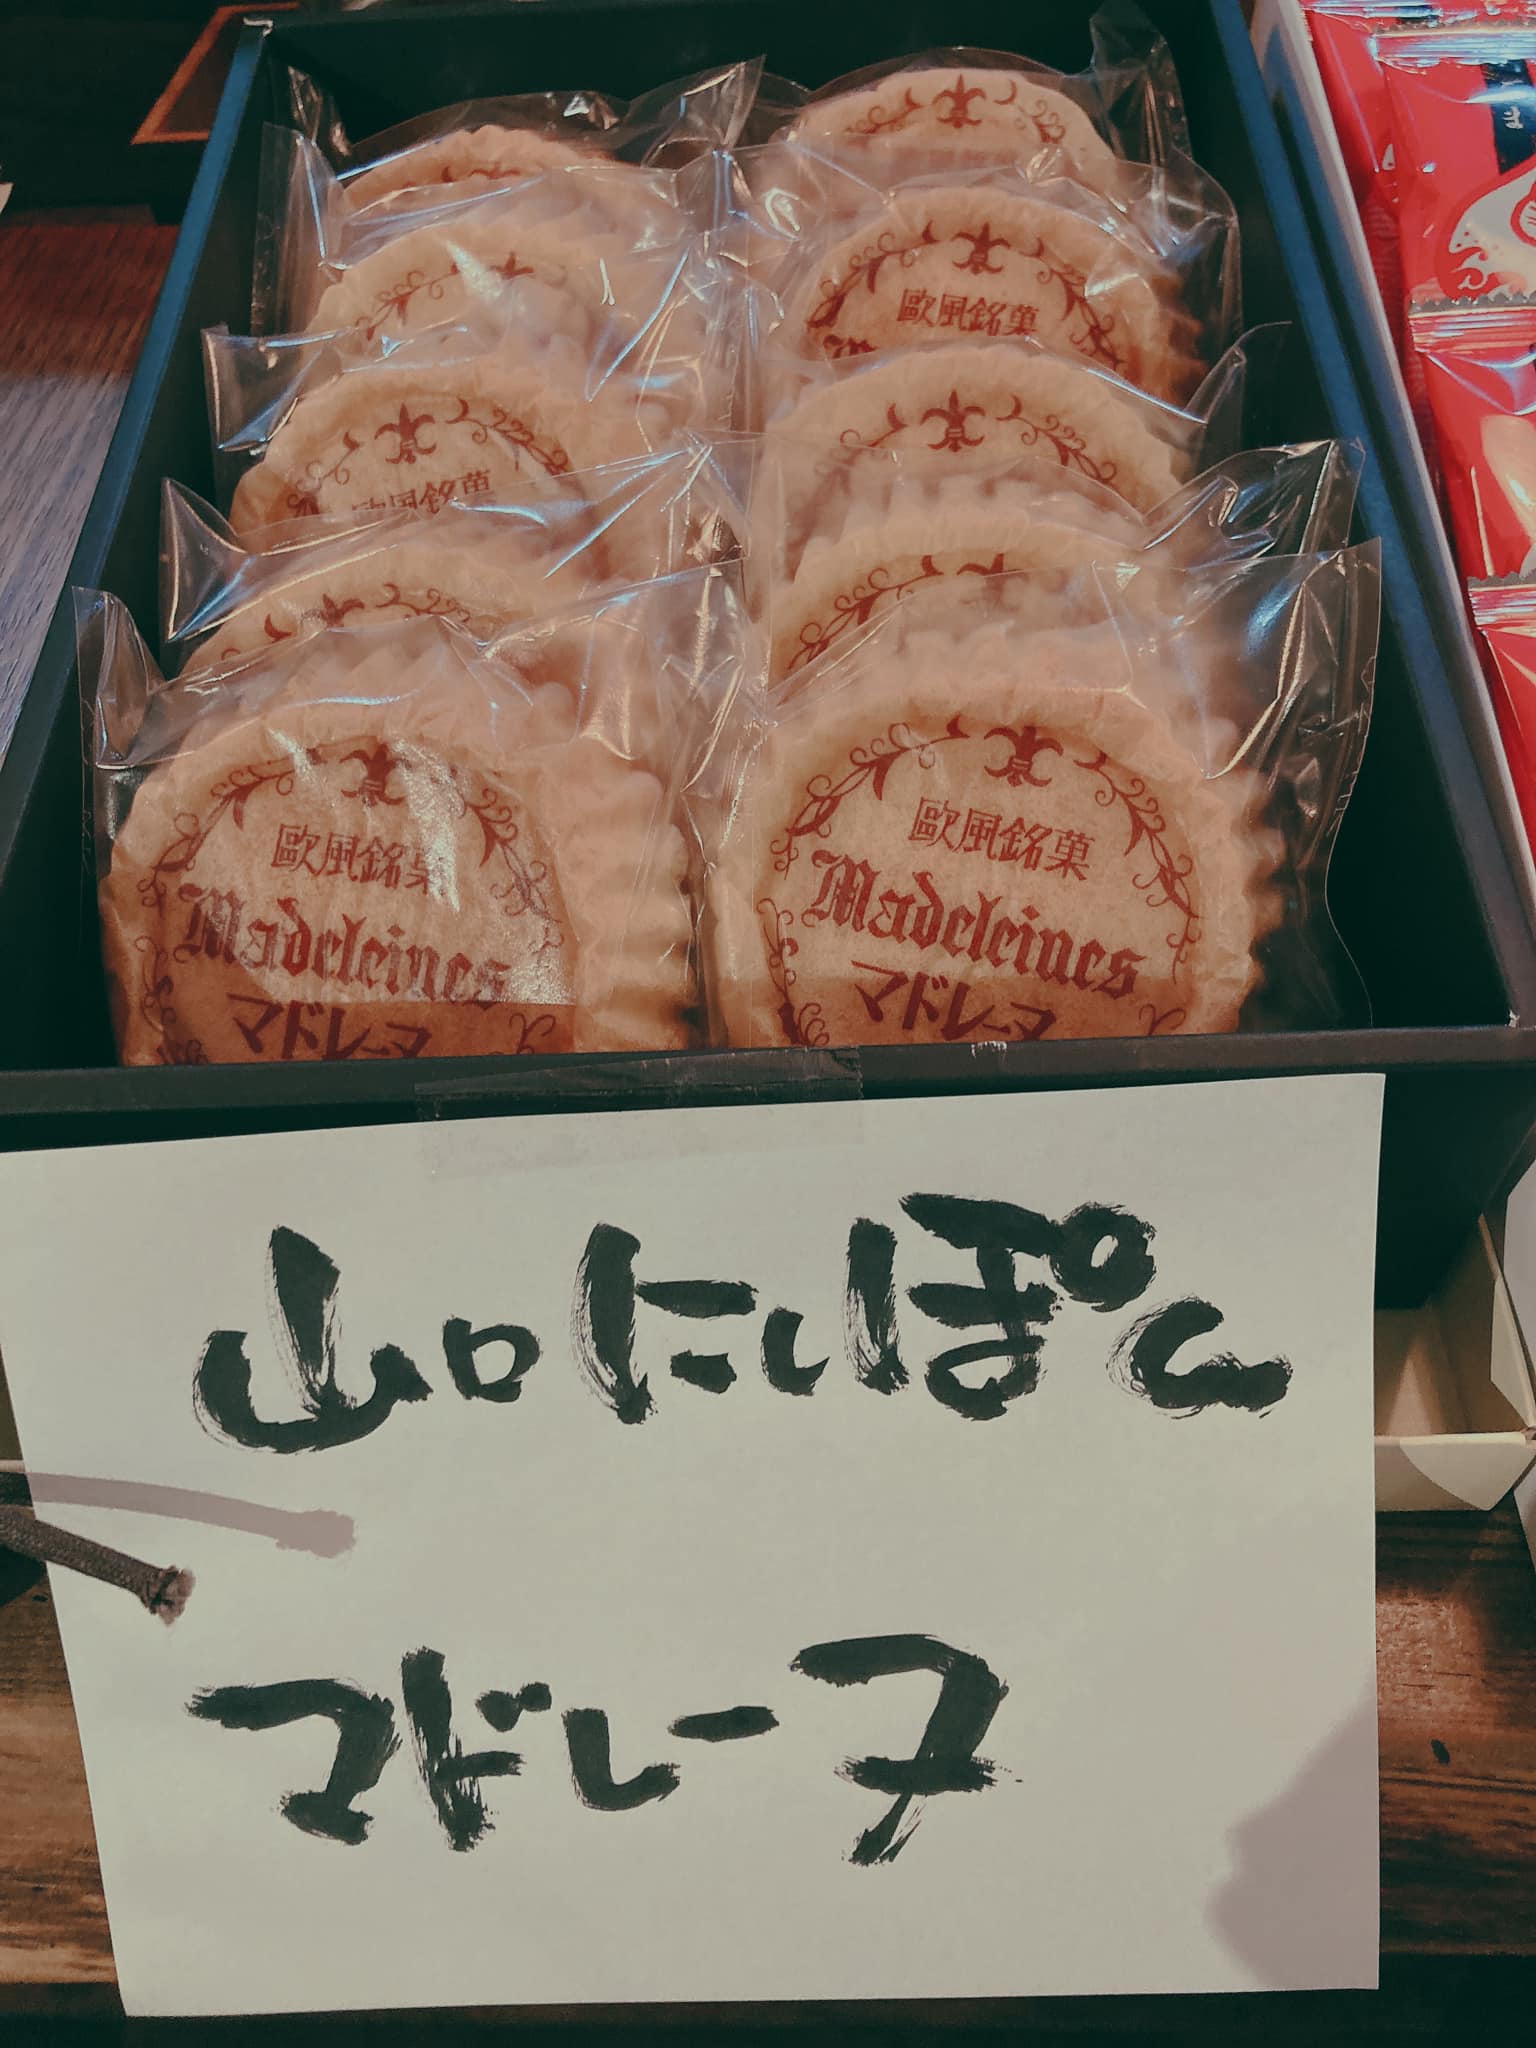 歐風銘菓
歐風銘菓
歐風銘菓
Madeleines
マドレーヌ
歐風銘菓
Madeleines
マドレーヌ
山口にっぽん
マドレーヌ